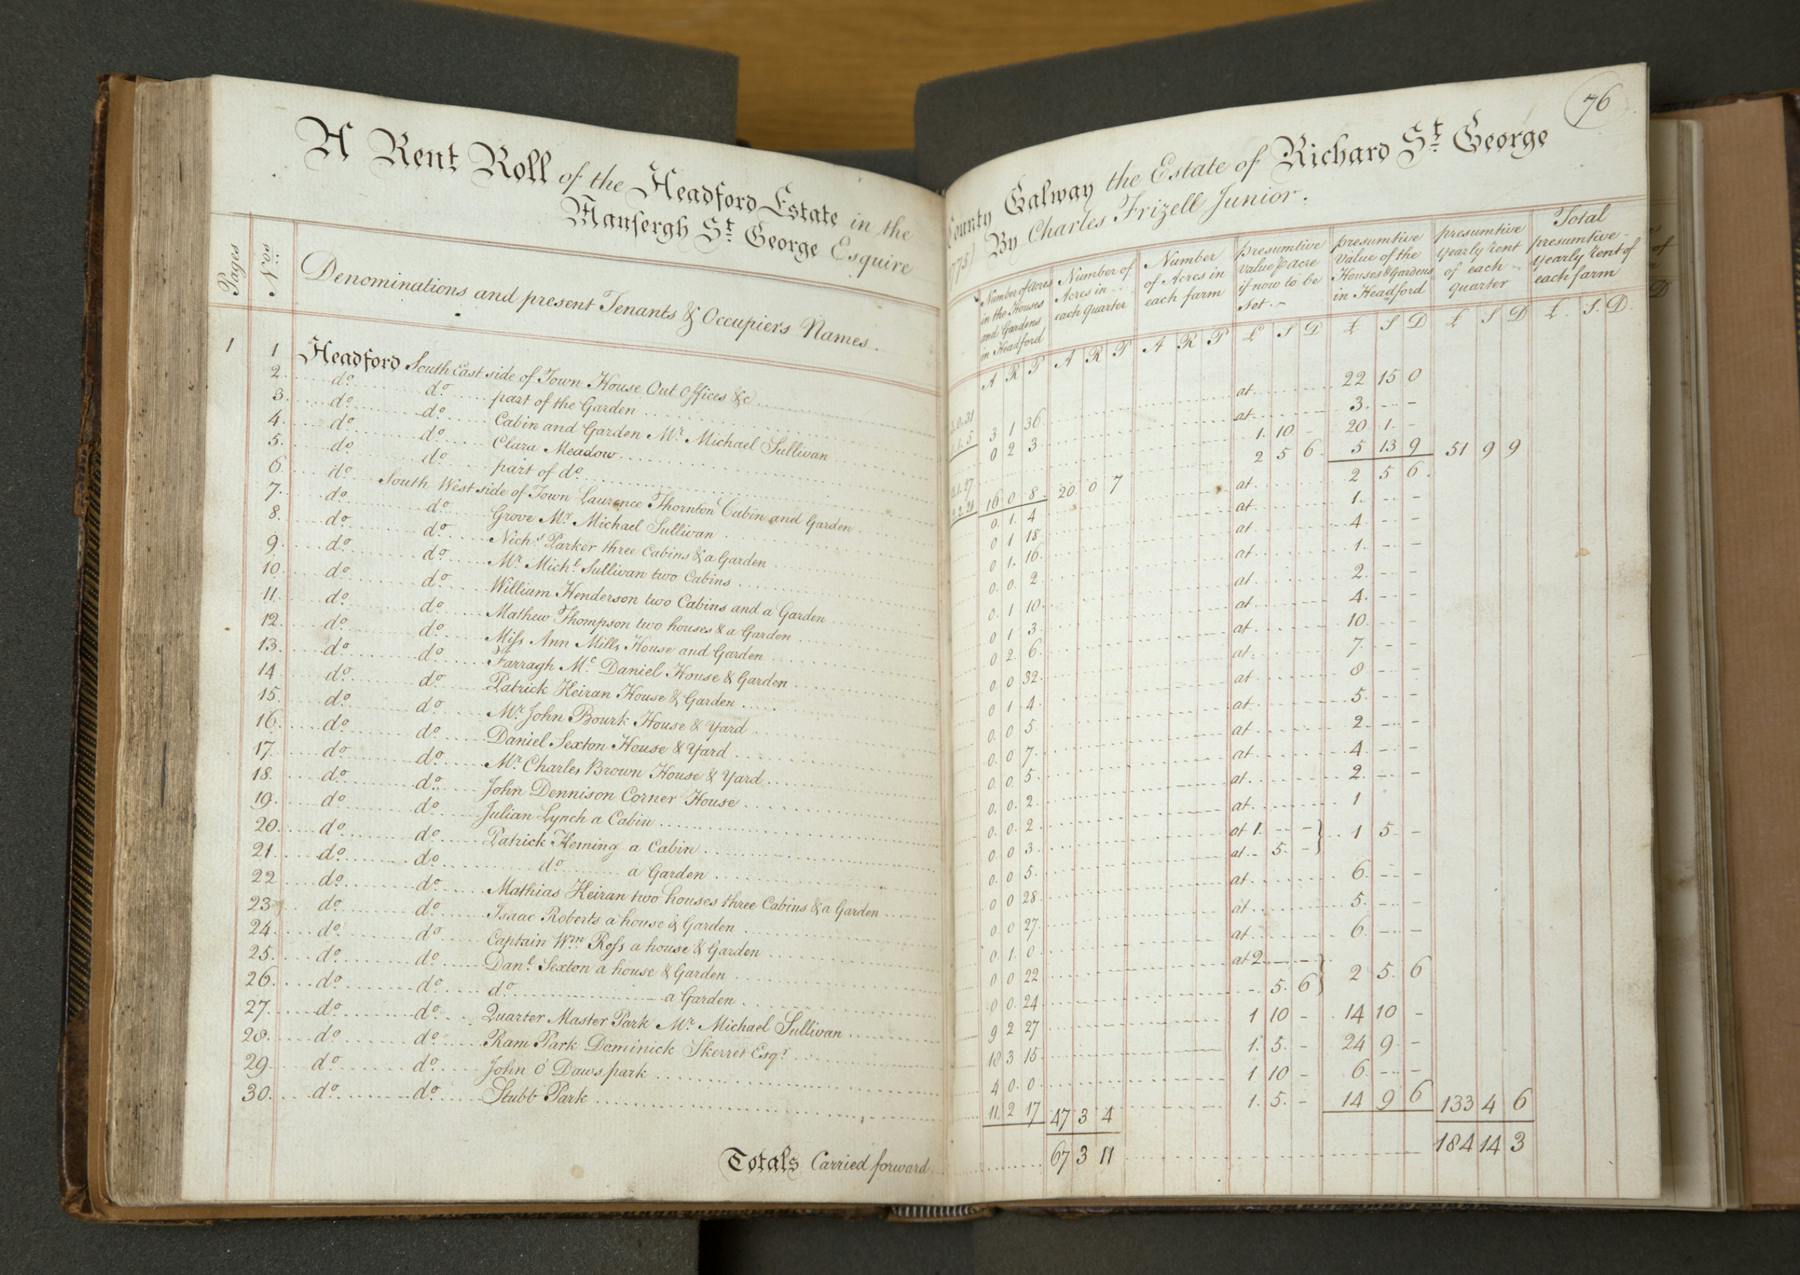 A Rent Roll of the Headford Estate in the
Mansergh St. George Esquire
Pages
No.s
Denominations and present Tenants & Occupiers Names.
1 1 Headford South East side of Town House Out Offices &c
2. do. do. part of the Garden
3. do. do. Cabin and Garden Mr. Michael Sullivan
4. do. do. Clara Meadow
5. do. do. part of do.
6. do. South West side of Town Laurence Thornton Cabin and Garden
7. do. do. Grove Mr. Michael Sullivan
8. do. do. Nichs. Parker three Cabins & a Garden
9. do. do. Mr. Michl. Sullivan two Cabins
10. do. do. William Henderson two Cabins and a Garden
11. do. do. Mathew Thompson two houses & a Garden
12. do. do. Miss Ann Mills House and Garden
13. do. do. Farragh Mc. Daniel House & Garden
14 do. do. Patrick Keiran House & Garden
15. do. do. Mr. John Bourk House & Yard
16. do. do. Daniel Sexton House & Yard
17. do do. Mr. Charles Brown House & Yard
18. do. do. John Dennison Corner House
19. do. do. Julian Lynch a Cabin
20. do. do. Patrick Heming a Cabin
21 do. do. do. a Garden
22 do. do. Mathias Keiran two houses three Cabins & a Garden
23 do. do. Isaac Roberts a house & Garden
24. do. do. Captain Wm. Ross a house & Garden
25. do. do. Danl. Sexton a house & Garden
26. do. do. do. a Garden
27. do. do. Quarter Master Park Mr. Michael Sullivan
28. do. do. Ram Park Dominick Skerret Esqr.
29. do. do. John O'Daws park
30. do. do. Stubb Park
Totals Carried forward
76
County Galway the Estate of Richard St. George
By Charles Frizell Junior.
Number of Acres in the Houses and Gardens in Headford
Number of Acres in each quarter
Number of Acres in each farm
presumtive value P Acre if now to be set.
presumtive value of the Houses & Gardens in Headford
presumtive Yearly Rent of each quarter
Total presumtive Yearly Rent of each farm
A R P A R P A R P £ S D £ S D £ S D £ S. D.
at 22 15 0
3 1 36 at 3. - -
0 2 3 1. 10 - 20 1. -
2 5 6 5 13 9 51 9 9
16 0 8 20 0 7 at 2 5 6.
0. 1. 4 at 1. - -
0 1 18 at 4 - -
0 1. 16. at 1. - -
0. 0. 2 at 2. - -
0 1 10. at 4. - -
0 1 3. at 10. - -
0 2. 6. at. 7. - -
0 0 32. at 8 - -
0 1 4. at 5. - -
0 0 5. at 2. - -
0 0 7. at 4 - -
0 0 5. at 2. - -
0. 0. 2. at 1
0. 0. 2 at 1. - - } 1 5. -
0 0 3. at - 5. -
0. 0 5. at 6. - -
0 0 28. at 5. - -
0 0 27. at 6. - -
0. 1. 0. at 2 - - } 2 5. 6
0 0 22 - 5. 6
0 0. 24
9 2 27 1 10 - 14 10 -
18 3 15. 1. 5. - 24 9 -
4 0. 0. 1 10 - 6. - -
11. 2 17 47 3 4 1. 5. - 14 9 6 133 4 6
67 3 11 184 14 3